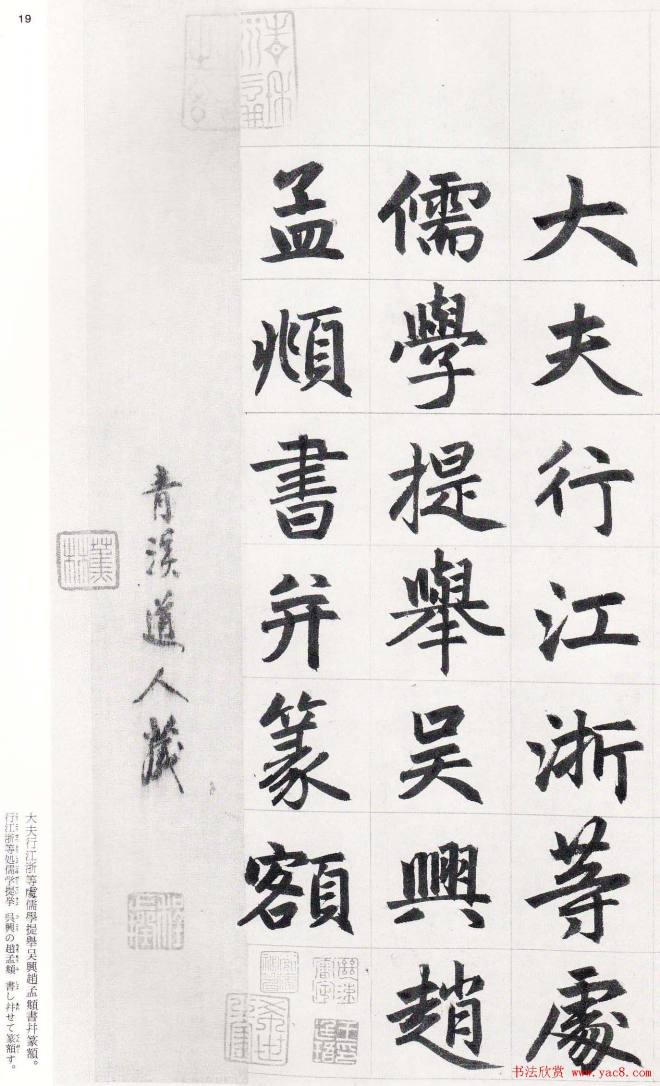 大夫行江浙等處
儒學提舉吳興趙
孟頫書并篆額
青溪道人藏
蕉林
大夫行江浙等處儒學提舉吳興趙孟頫書并篆額。
行江浙等処儒学提挙 呉興の趙孟頫 書し并せて篆額す。
19
书法欣赏 www.yac8.com